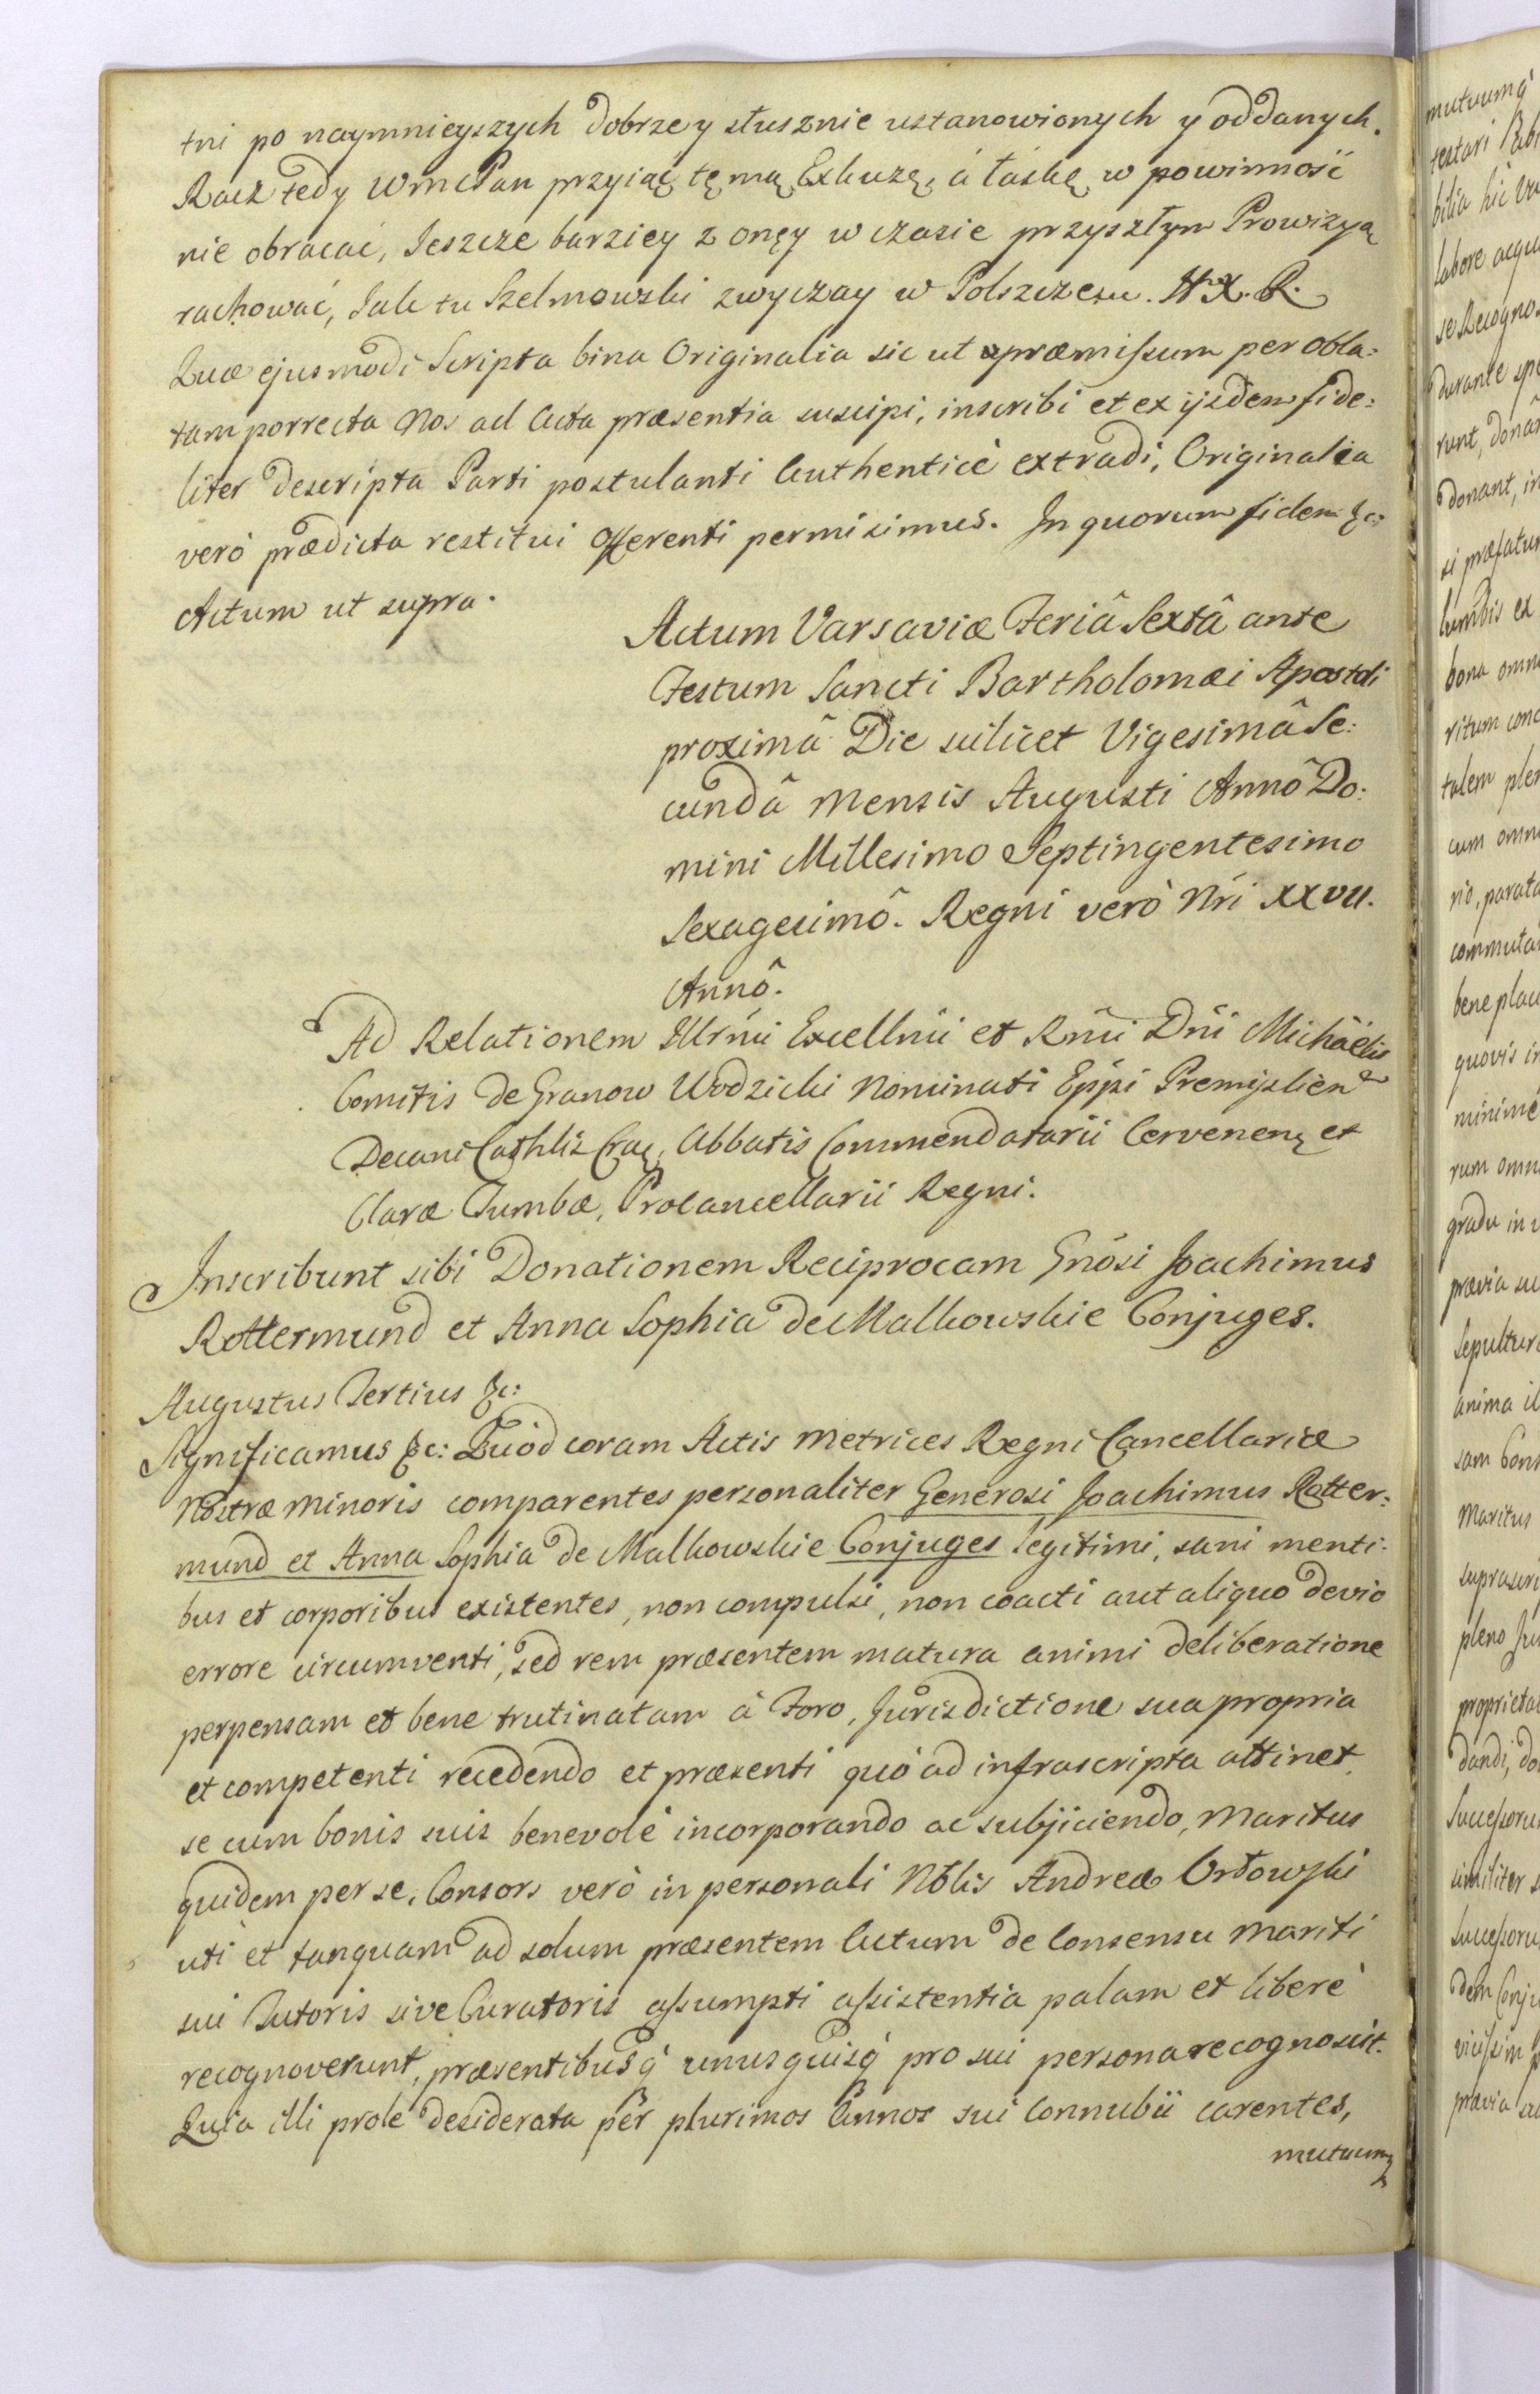 tni po naymnieyszych dobrze y słusznie ustanowionych y oddanych.
Racz tedy WmcPan przyiąć tę mą Exkuzę, á łaskę w powinność
nie obracać, Jeszcze barziey z onęy w czasie przyszłym Prowizyą
rachować, Jak tu Szelmowski zwyczay w Polszcze su. H. X. R.
Quæ ejusmodi Scripta bina Originalia sic ut præmissum per obla:
tam porrecta Nos ad Acta præsentia suscipi, inscribi et ex ijsdem fide:
liter descripta Parti postulanti Authenticè extradi, Originalia
verò prædicta restitui Offerenti permisimus. In quorum fidem &c:
Actum ut supra.
Actum Varsaviæ Feriâ Sextâ ante
Festum Sancti Bartholomæi Apostoli
proximâ Die scilicet Vigesimâ Se:
cundâ Mensis Augusti Annô Do:
mini Millesimo Septingentesimo
Sexagesimô. Regni verò Nri XXVII.
Annô.
Ad Relationem Illrmi Excellmi et Rmi Dni Michäelis
Comitis de Granow Wodzicki Nominati Eppi Premislien
Decani Cathlis Crac, Abbatis Commendatarii Cervenen et
Claræ Tumbæ, Procancellarii Regni.
Inscribunt sibi Donationem Reciprocam Gnosi Joachimus
Rottermund et Anna Sophia de Malkowskie Conjuges.
Augustus Tertius &c:
Significamus &c: Quòd coram Actis Metrices Regni Cancellariæ
Nostræ Minoris comparentes personaliter Generosi Joachimus Rotter:
mund et Anna Sophia de Malkowskie Conjuges legitimi, sani menti:
bus et corporibus existentes, non compulsi, non coacti aut aliquo devio
errore circumventi, sed rem præsentem matura animi deliberatione
perpensam et bene trutinatam à Foro, Jurisdictione sua propria
et competenti recedendo et præsenti quò ad infrascripta attinet
se cum bonis suis benevolè incorporando ac subjiciendo, Maritus
quidem per se, Consors verò in personali Nblis Andreæ Orłowski
uti et tanquam ad solum præsentem Actum de Consensu Mariti
sui Tutoris sive Curatoris assumpti assistentia palam et liberè
recognoverunt, præsentibusq́ unusquisq́ pro sui persona recognoscit.
Quia illi prole desiderata per plurimos Annos sui Connubii carentes,
mutuumq